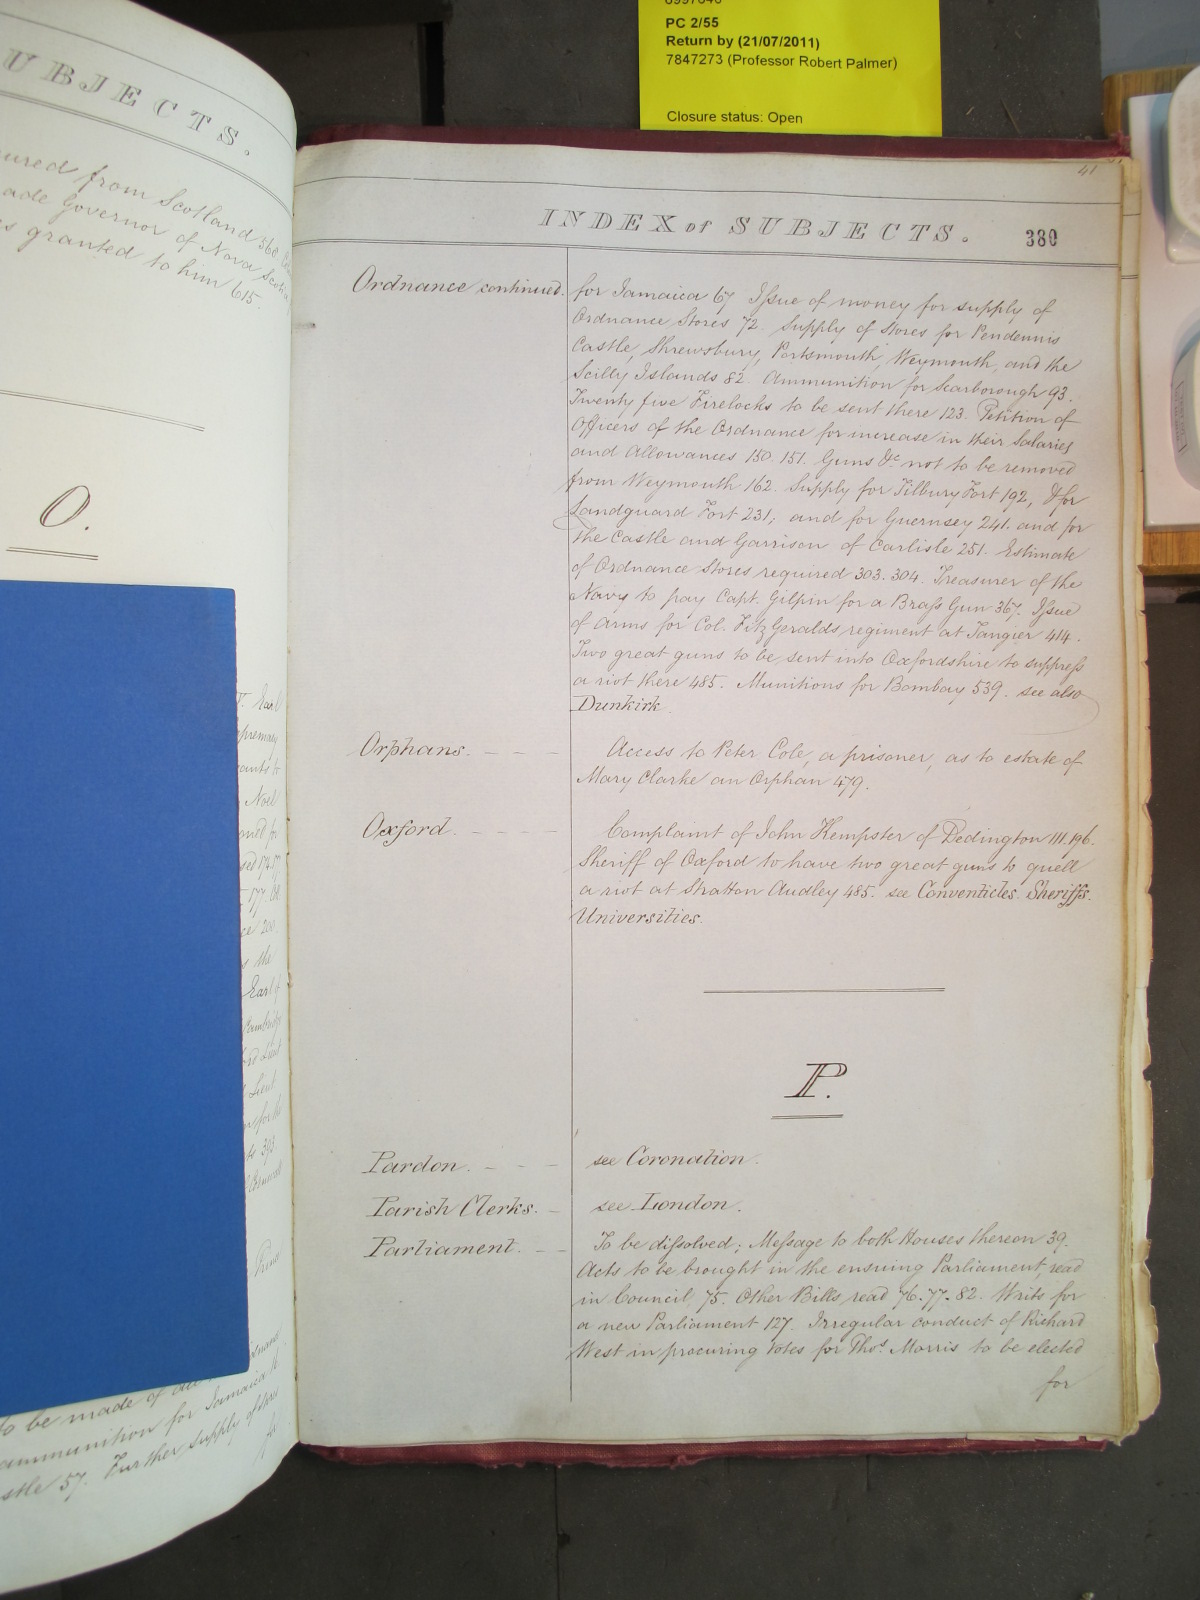 PC 2/55
Return by (21/07/2011)
7847273 (Professor Robert Palmer)
Closure status: Open
UBJECTS.
from Scotland 560
ade Governor of Nova Scotia
granted to him 615
O.
to be made of
ammunition for Jamaica
57. Further supply of
41
INDEX of SUBJECTS.
380
Ordnance continued.
for Jamaica 67 Issue of money for supply of
Ordnance Stores 72. Supply of Stores for Pendennis
Castle, Shrewsbury, Portsmouth, Weymouth, and the
Scilly Islands 82. Ammunition for Scarborough 93.
Twenty five Firelocks to be sent there 123. Petition of
Officers of the Ordnance for increase in their Salaries
and Allowances 150. 151. Guns &c. not to be removed
from Weymouth 162. Supply for Tilbury Fort 192, & for
Landguard Fort 231; and for Guernsey 241. and for
the Castle and Garrison of Carlisle 251. Estimate
of Ordnance Stores required 303. 304. Treasurer of the
Navy to pay Capt. Gilpin for a Brass Gun 367. Issue
of Arms for Col. FitzGeralds regiment at Tangier 414.
Two great guns to be sent into Oxfordshire to suppress
a riot there 485. Munitions for Bombay 539. see also
Dunkirk.
Orphans. - - -
Access to Peter Cole, a prisoner, as to estate of
Mary Clarke an Orphan 479.
Oxford. - - - -
Complaint of John Kempster of Dedington 111. 196.
Sheriff of Oxford to have two great guns to quell
a riot at Stratton Audley 485. see Conventicles. Sheriffs.
Universities.
P.
Pardon. - - -
see Coronation.
Parish Clerks. -
see London.
Parliament. - -
To be dissolved; Message to both Houses thereon 39.
Acts to be brought in the ensuing Parliament, read
in Council, 75. Other Bills read 76. 77. 82. Writs for
a new Parliament 127. Irregular conduct of Richard
West in procuring votes for Thos. Morris to be elected
for